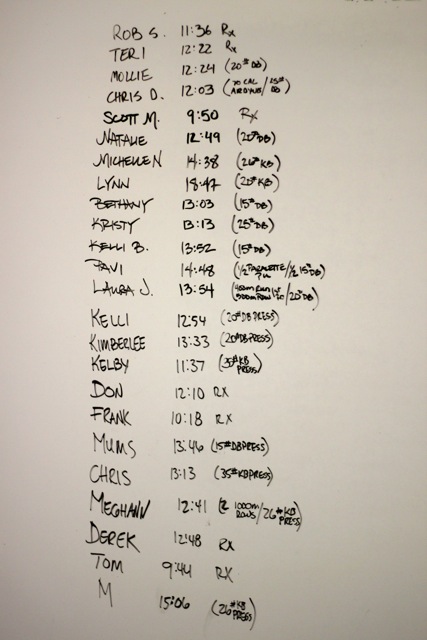 ROB S. 11:36 Rx
TERI 12:22 Rx
MOLLIE 12:24 (20# DB)
CHRIS D. 12:03 (70 CAL AIRDYNE/25# DB)
SCOTT M. 9:50 Rx
NATALIE 12:49 (20# DB)
MICHELLE N 14:38 (26# KB)
LYNN 18:47 (20# KB)
BETHANY 13:03 (15# DB)
KRISTY 13:13 (25# DB)
KELLI B. 13:52 (15# DB)
PAVI 14:48 (1/2 PARALETTE /1/2 15# DB)
LAURA J. 13:54 (400M RUN 500M ROW /20# DB)
KELLI 12:54 (20# DB PRESS)
KIMBERLEE 13:33 (20# DB PRESS)
KELBY 11:37 (35# KB PRESS)
DON 12:10 RX
FRANK 10:18 RX
MUMS 13:46 (15# DB PRESS)
CHRIS 13:13 (35# KB PRESS)
MEGHANN 12:41 (2 1000m ROWS/26# KB PRESS)
DEREK 12:48 RX
TOM 9:44 RX
M 15:06 (26# KB PRESS)